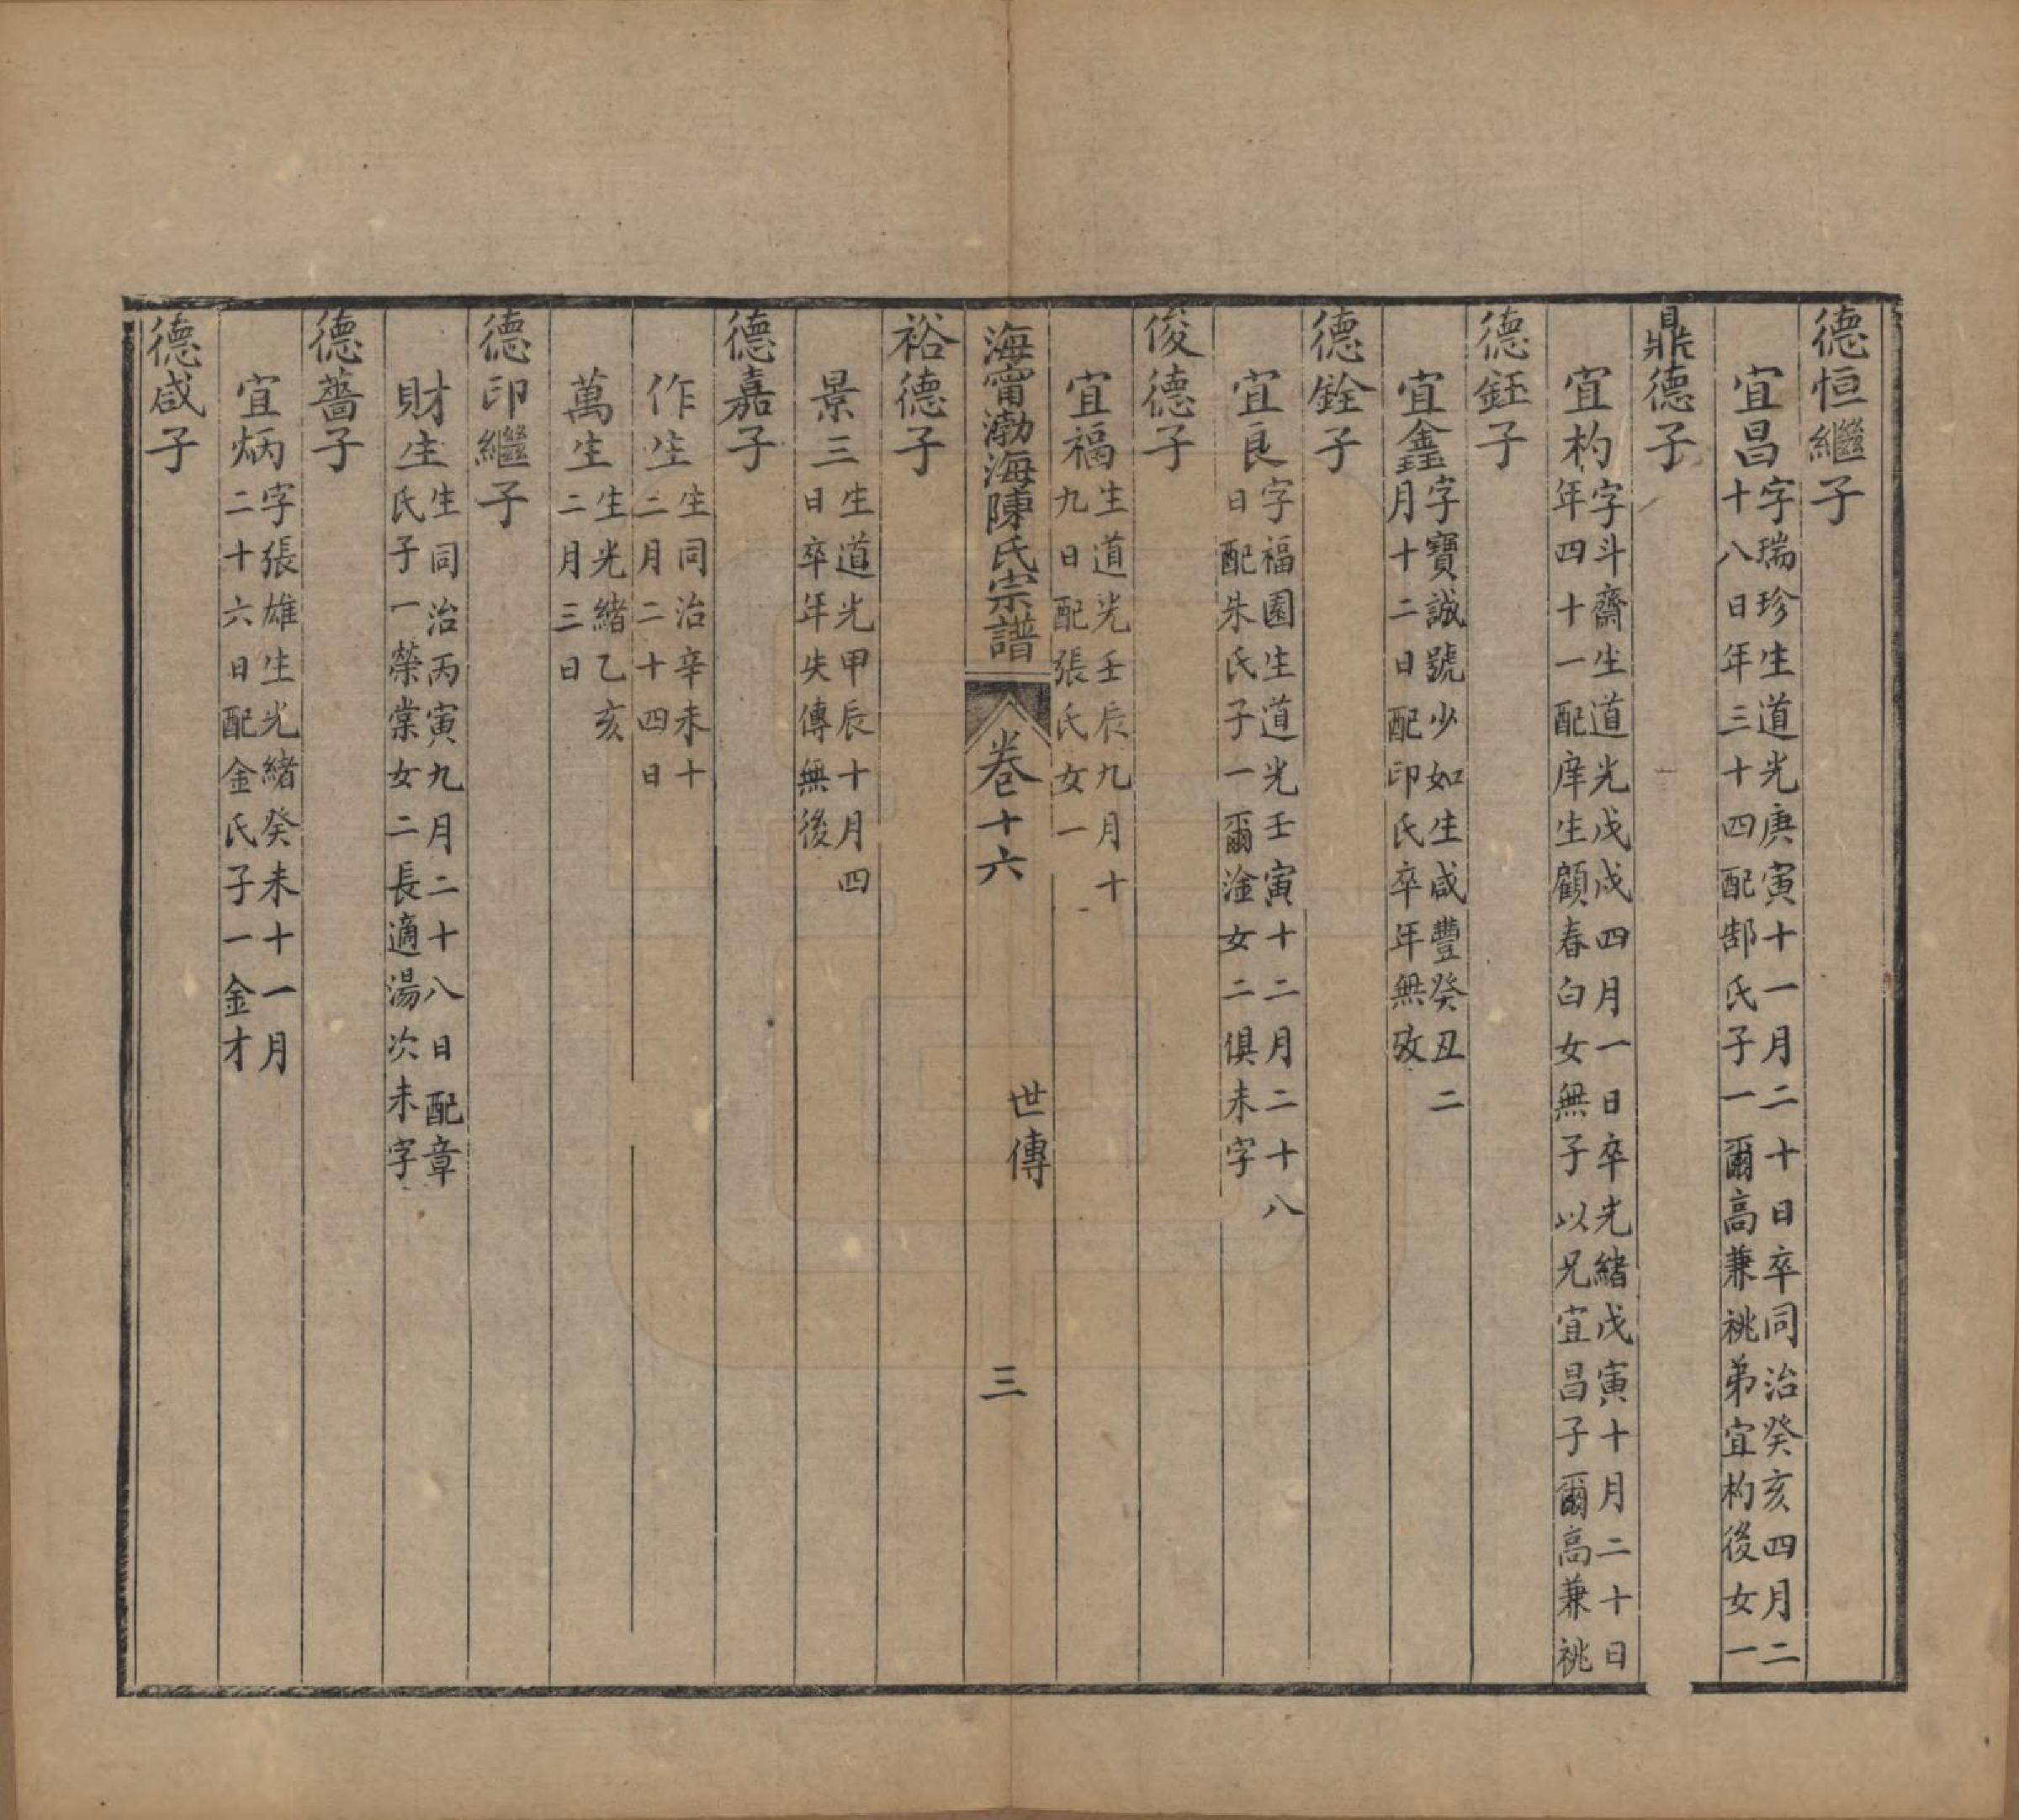 德恒繼子
宜昌字瑞珍生道光庚寅十一月二十日卒同治癸亥四月二
十八日年三十四配郜氏子一爾高兼祧弟宜杓後女一
鼎德子
宜杓字斗齋生道光戊戌四月一日卒光緒戊寅十月二十日
年四十一配庠生顧春白女無子以兄宜昌子爾高兼祧
德鈺子
宜鑫字寶誠號少如生咸豐癸丑二
月十二日配印氏卒年無攷
德銓子
宜良字福園生道光壬寅十二月二十八
日配朱氏子一爾淦女二俱未字
俊德子
宜福生道光壬辰九月十
九日配張氏女一
海甯渤海陳氏宗譜 卷十六 世傳 三
裕德子
景三生道光甲辰十月四
日卒年失傳無後
德嘉子
作生生同治辛未十
二月二十四日
萬生生光緒乙亥
二月三日
德印繼子
財生生同治丙寅九月二十八日配章
氏子一榮棠女二長適湯次未字
德薔子
宜炳字張雄生光緒癸未十一月
二十六日配金氏子一金才
德咸子